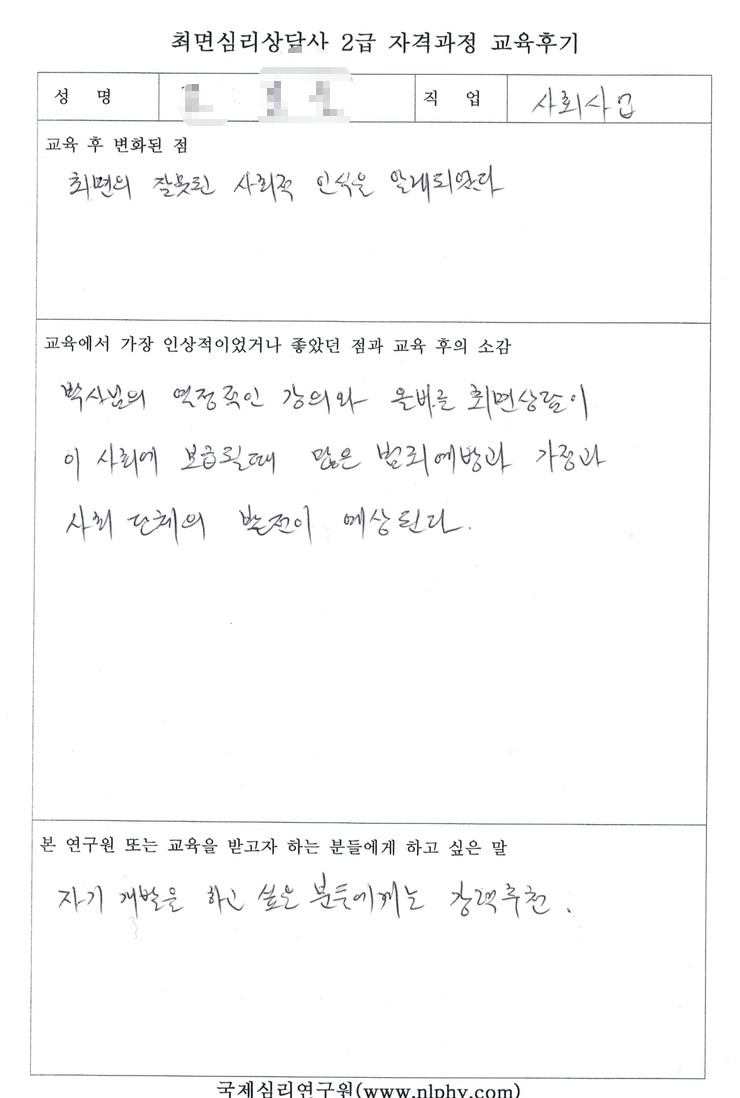 최면심리상담사 2급 자격과정 교육후기
성 명
직 업 사회사업
교육 후 변화된 점
최면의 잘못된 사회적 인식을 알게되었다
교육에서 가장 인상적이었거나 좋았던 점과 교육 후의 소감
박사님의 열정적인 강의와 올바른 최면상담이
이 사회에 보급될때 많은 범죄예방과 가정과
사회 단체의 발전이 예상된다.
본 연구원 또는 교육을 받고자 하는 분들에게 하고 싶은 말
자기 개발을 하고 싶은 분들에게는 강력추천.
국제심리연구원(www.nlphy.com)